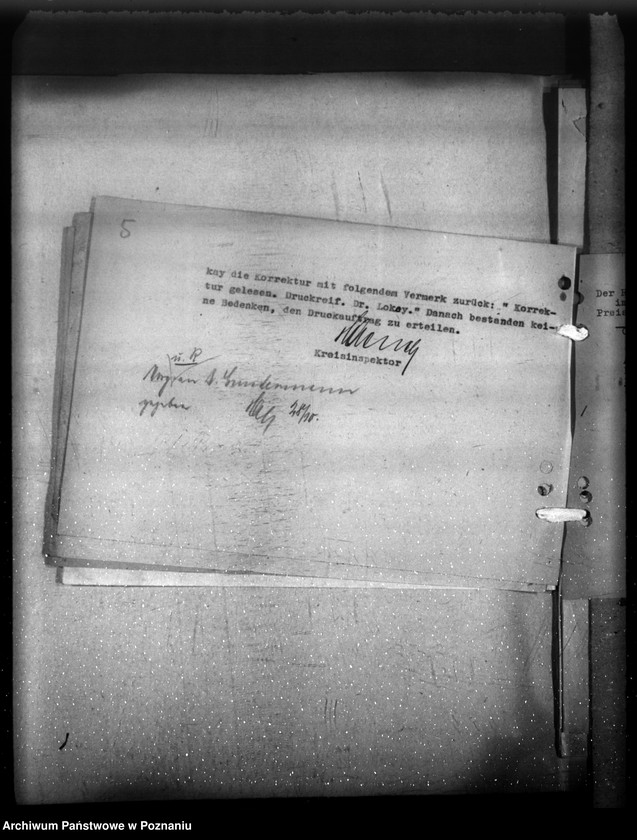 5
kay die Korrektur mit folgendem Vermerk zurück: " Korrek-
tur gelesen. Druckreif. Dr. Lokay." Danach bestanden kei-
ne Bedenken, den Druckauftrag zu erteilen.
Kreisinspektor
u. R
28/10.
Der
Archiwum Państwowe w Poznaniu